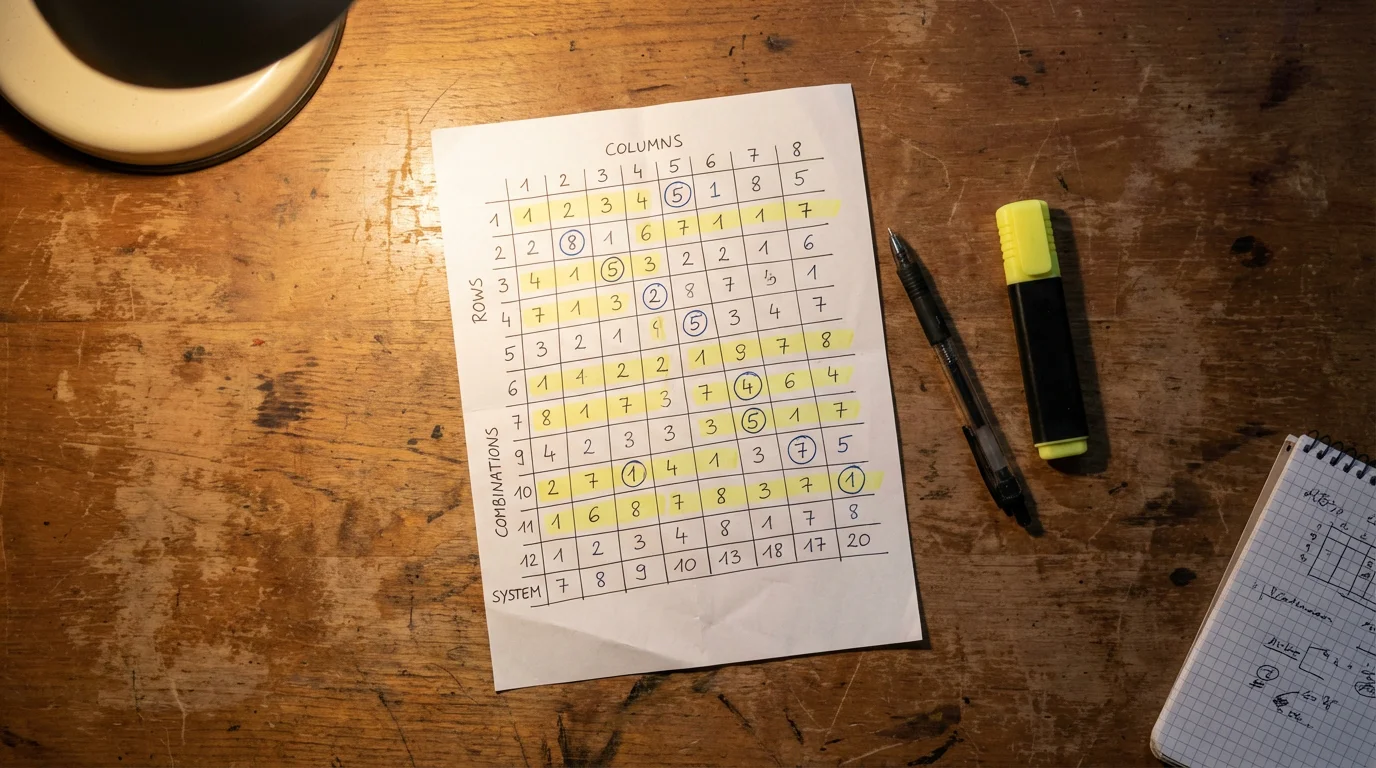 COLUMNS
1 2 3 4 5 6 7 8
1 1 2 3 4 5 1 8 5
2 2 8 1 6 7 1 1 7
3 4 1 5 3 2 2 1 6
4 7 1 3 2 8 7 5 1
5 3 2 1 4 5 3 4 7
6 1 1 2 2 1 9 7 8
7 8 1 7 3 7 4 6 4
9 4 2 3 3 3 5 1 7
10 2 7 1 4 1 3 7 5
11 1 6 8 7 8 3 7 1
12 1 2 3 4 8 1 7 8
SYSTEM 7 8 9 10 13 18 17 20
ROWS
COMBINATIONS